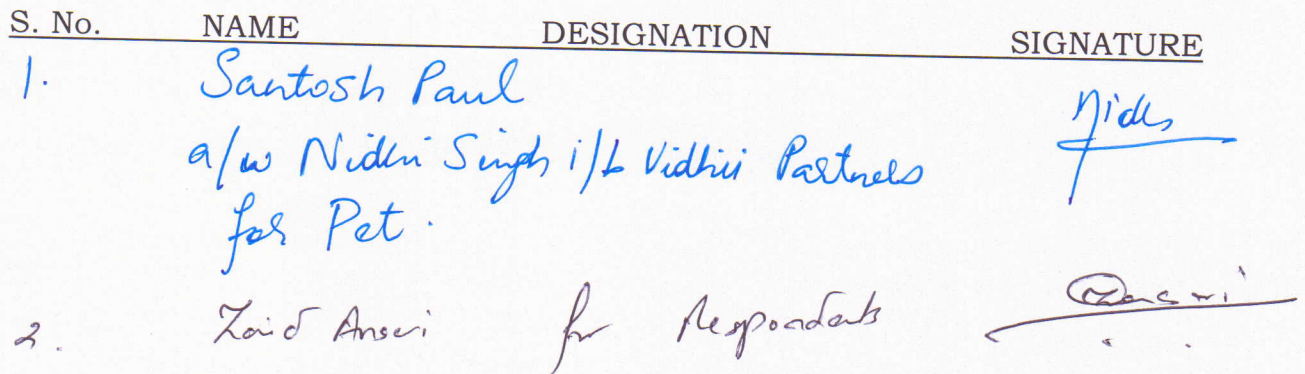 S. No. NAME DESIGNATION SIGNATURE
1. Santosh Paul Nidhi
a/w Nidhi Singh i/b Vidhii Partners
for Pet.
2. Zaid Ansari for Respondents